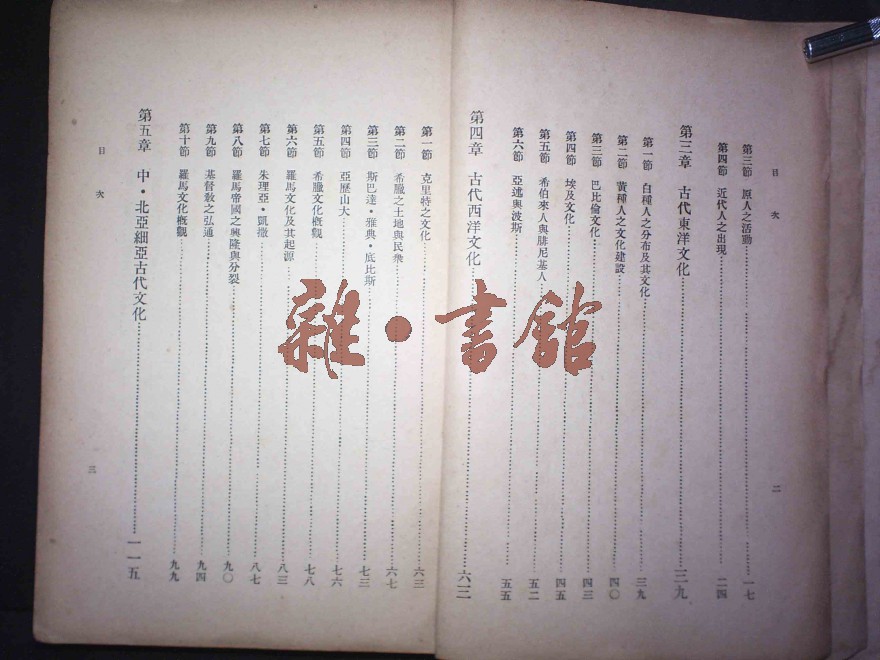 目次
二
第三節 原人之活動 一七
第四節 近代人之出現 二四
第三章 古代東洋文化 三九
第一節 白種人之分布及其文化 三九
第二節 黃種人之文化建設 四〇
第三節 巴比倫文化 四三
第四節 埃及文化 四五
第五節 希伯來人與腓尼基人 五二
第六節 亞述與波斯 五五
第四章 古代西洋文化 六三
第一節 克里特之文化 六三
第二節 希臘之土地與民衆 六七
第三節 斯巴達·雅典·底比斯 七三
第四節 亞歷山大 七六
第五節 希臘文化概觀 七八
第六節 羅馬文化及其起源 八三
第七節 朱理亞·凱撒 八七
第八節 羅馬帝國之興隆與分裂 九〇
第九節 基督教之弘通 九四
第十節 羅馬文化概觀 九九
第五章 中·北亞細亞古代文化 一一五
目次
三
雜·書館